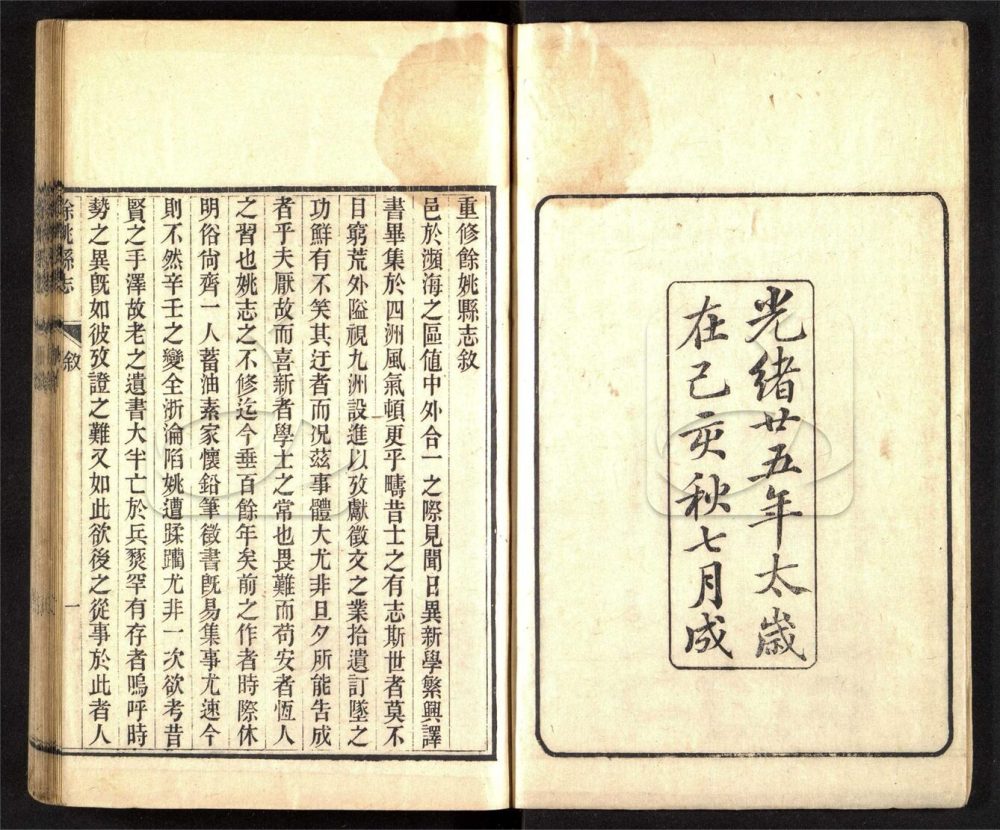 光緒廿五年太歲
在己亥秋七月成
重修餘姚縣志敘
邑於瀕海之區値中外合一之際見聞日異新學繁興譯
書畢集於四洲風氣頓更乎疇昔士之有志斯世者莫不
目窮荒外隘視九洲設進以攷獻徵文之業拾遺訂墜之
功鮮有不笑其迂者而况茲事體大尤非旦夕所能告成
者乎夫厭故而喜新者學士之常也畏難而苟安者恆人
之習也姚志之不修迄今垂百餘年矣前之作者時際休
明俗尙齊一人蓄油素家懷鉛筆徵書旣易集事尤速今
則不然辛壬之變全浙淪陷姚遭蹂躪尤非一次欲考昔
賢之手澤故老之遺書大半亡於兵燹罕有存者嗚呼時
勢之異旣如彼攷證之難又如此欲後之從事於此者人
餘姚縣志
敘
一